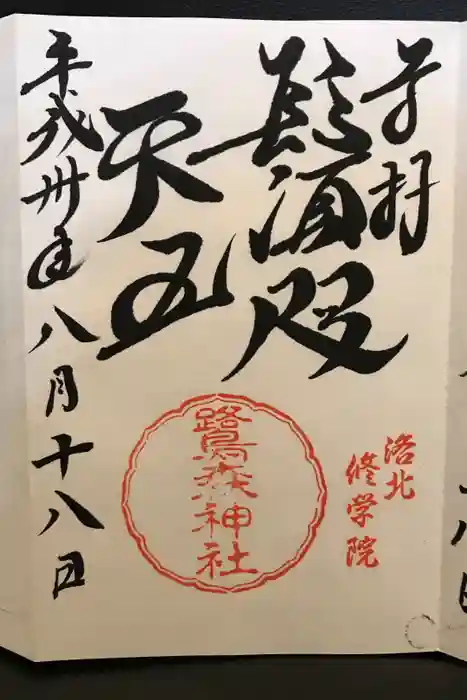 奉拝
鬚咫
天王
平成卅年八月十八日
洛北
修学院
鷺森神社